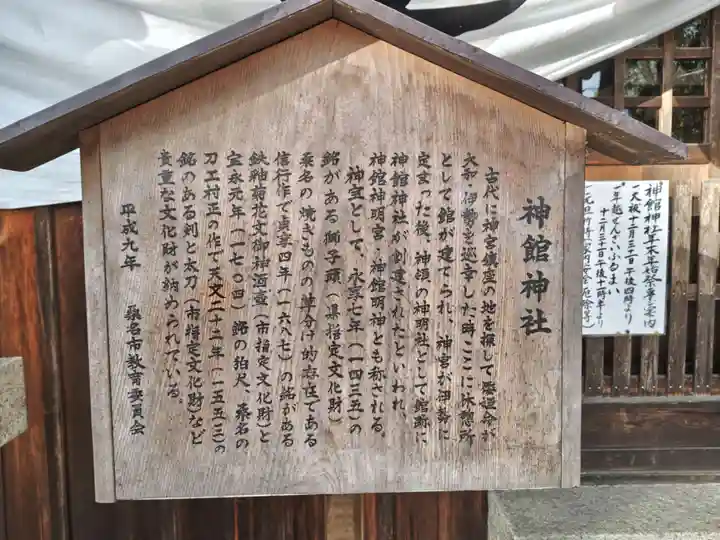 神館神社
古代に神宮鎮座の地を探して倭姫命が
大和・伊勢を巡幸した時ここに休憩所
として館が建てられ、神宮が伊勢に
定まった後、神領の神明社として館跡に
神館神社が創建されたといわれ、
神館神明宮・神館明神とも称される。
神宝として、永享七年(一四三五)の
銘がある獅子頭(県指定文化財)
桑名の焼きものの草分け的存在である
信行作で貞享四年(一六八七)の銘がある
鉄釉菊花文御神酒壷(市指定文化財)と
宝永元年(一七〇四)銘の狛犬、桑名の
刀工村正の作で天文二十二年(一五五三)の
銘のある剣と太刀(市指定文化財)など
貴重な文化財が納められている。
平成九年 桑名市教育委員会
神館神社年末年始祭事ご案内
一大祓十二月三一日午後四時より
一年越ぜんざいふるまい
十二月三十一日午後十一時半より